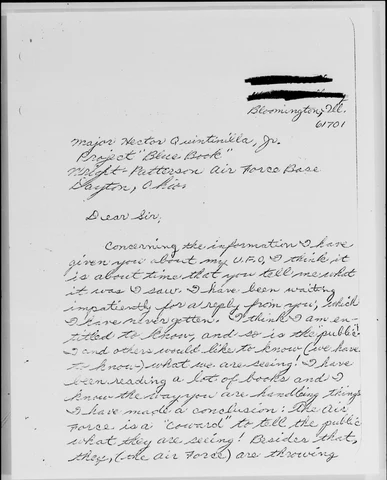 Bloomington, Ill.
61701
Major Hector Quintinilla, Jr.
Project "Blue Book"
Wright-Patterson Air Force Base
Dayton, Ohio
Dear Sir,
Concerning the information I have
given you about my U.F.O, I think it
is about time that you tell me what
it was I saw. I have been waiting
impatiently for a reply from you, which
I have never gotten. I think I am en-
titled to know, and so is the public
I and others would like to know (we have
to know) what we are seeing! I have
been reading a lot of books and I
know the way you are handling things
I have made a conclusion: The Air
Force is a "Coward" to tell the public
what they are seeing! Besides that,
they, (the Air Force) are throwing